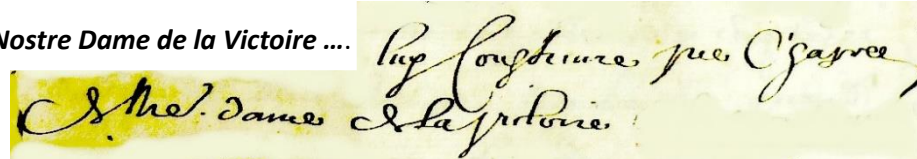 Nostre Dame de la Victoire ….
luy Construire une
de Nre. dame de la victoire